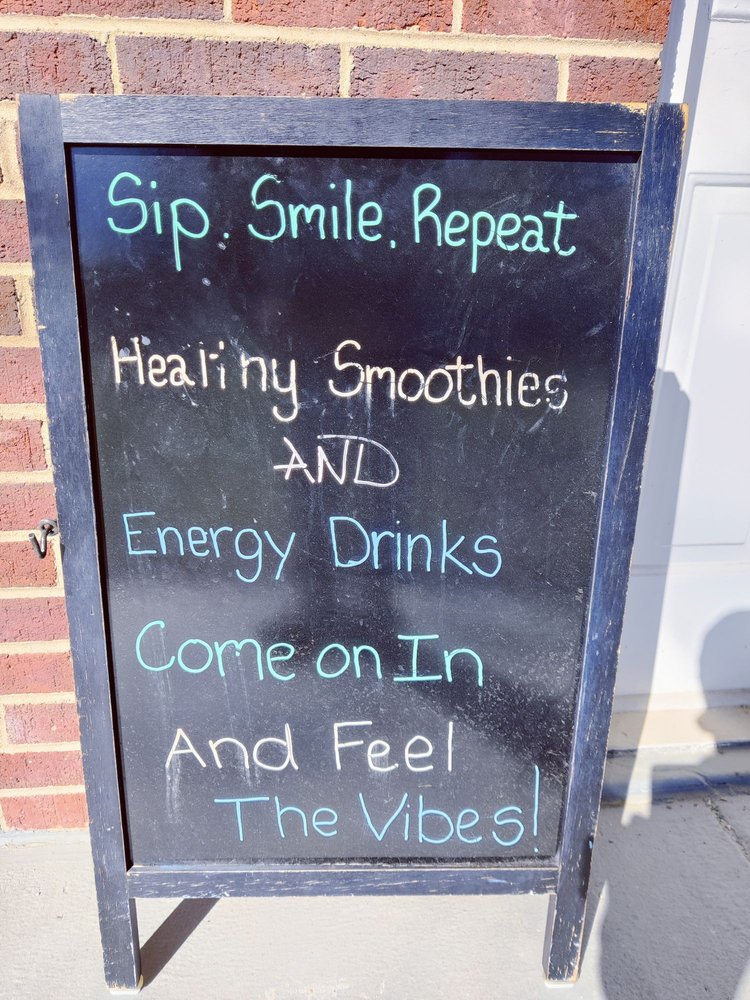 Sip. Smile. Repeat
Healthy Smoothies
AND
Energy Drinks
Come on In
And Feel
The Vibes!